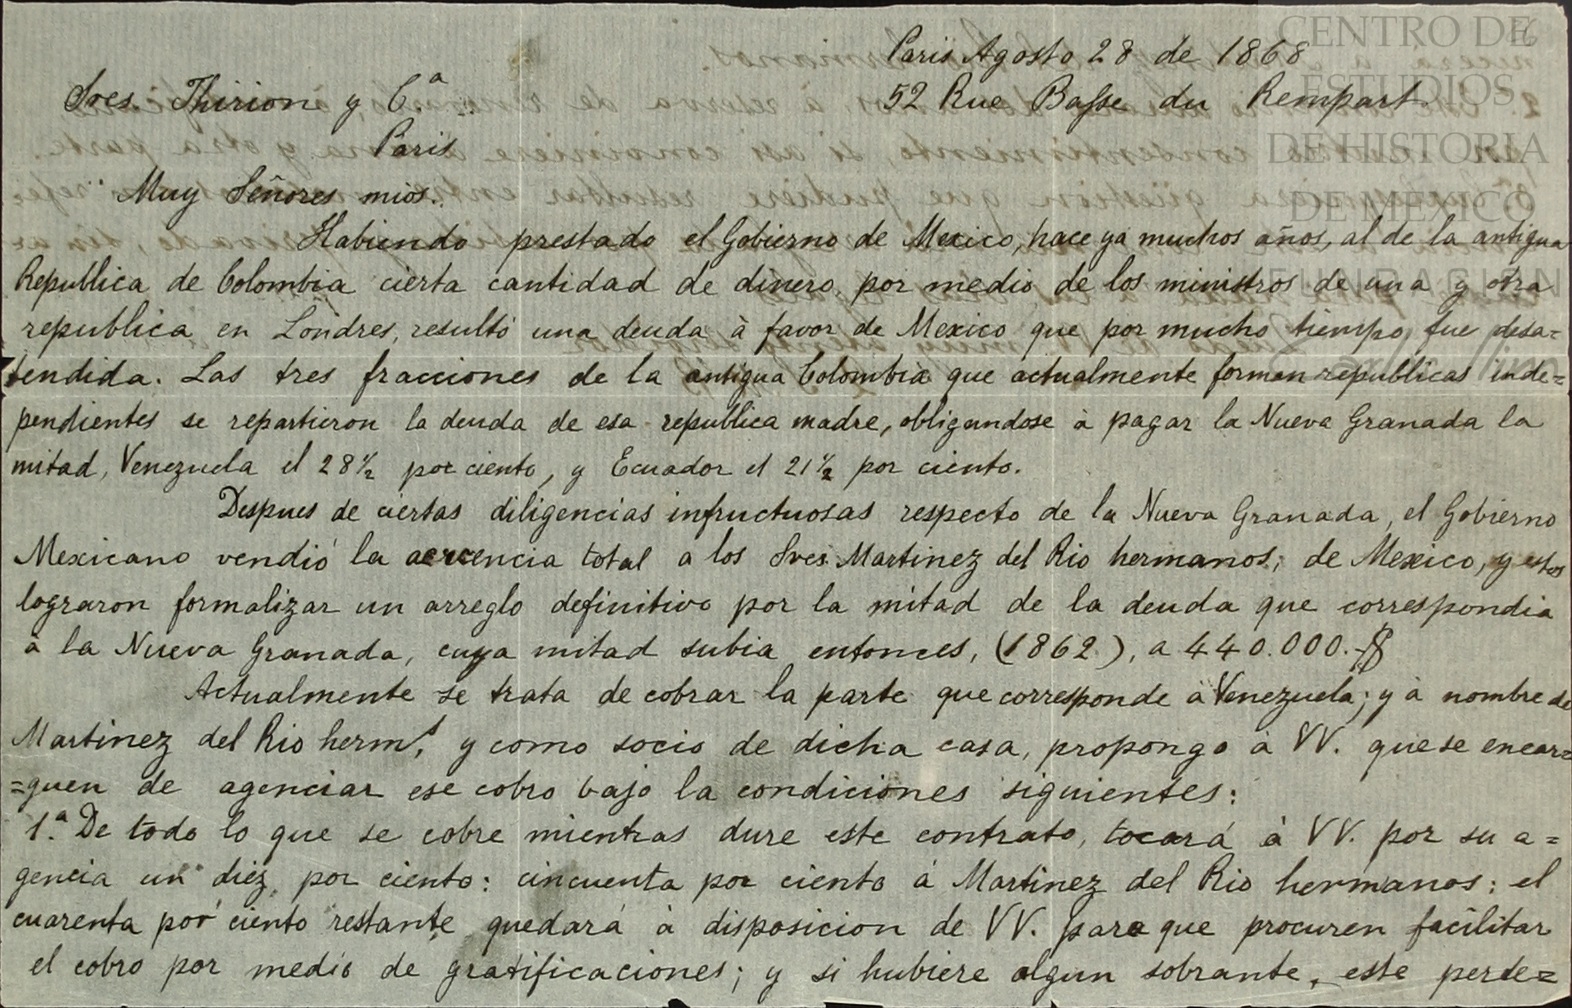 Paris Agosto 28 de 1868
Sres. Thirion y Cª
52 Rue Basse du Rempart.
Paris
Muy Señores mios.
Habiendo prestado el Gobierno de Mexico, hace ya muchos años, al de la antigua
Republica de Colombia cierta cantidad de dinero por medio de los ministros de una y otra
republica en Londres, resultó una deuda à favor de Mexico que por mucho tiempo fue desa=
tendida. Las tres fracciones de la antigua Colombia que actualmente forman republicas inde=
pendientes se repartieron la deuda de esa republica madre, obligandose à pagar la Nueva Granada la
mitad, Venezuela el 28½ por ciento, y Ecuador el 21½ por ciento.
Despues de ciertas diligencias infructuosas respecto de la Nueva Granada, el Gobierno
Mexicano vendió la acrencia total a los Sres. Martinez del Rio hermanos, de Mexico, y estos
lograron formalizar un arreglo definitivo por la mitad de la deuda que correspondia
à la Nueva Granada, cuya mitad subia entonces, (1862), a 440.000.-$
Actualmente se trata de cobrar la parte que corresponde à Venezuela; y à nombre de
Martinez del Rio hermˢ, y como socio de dicha casa, propongo à VV. que se encar=
=guen de agenciar ese cobro bajo la condiciones siguientes:
1.ª De todo lo que se cobre mientras dure este contrato, tocará à VV. por su a=
gencia un diez por ciento: cincuenta por ciento á Martinez del Rio hermanos: el
cuarenta por ciento restante quedará à disposicion de VV. para que procuren facilitar
el cobro por medio de gratificaciones; y si hubiere algun sobrante, este perde=
CENTRO DE
ESTUDIOS
DE HISTORIA
DE MEXICO
FUNDACIÓN
Carlos Slim